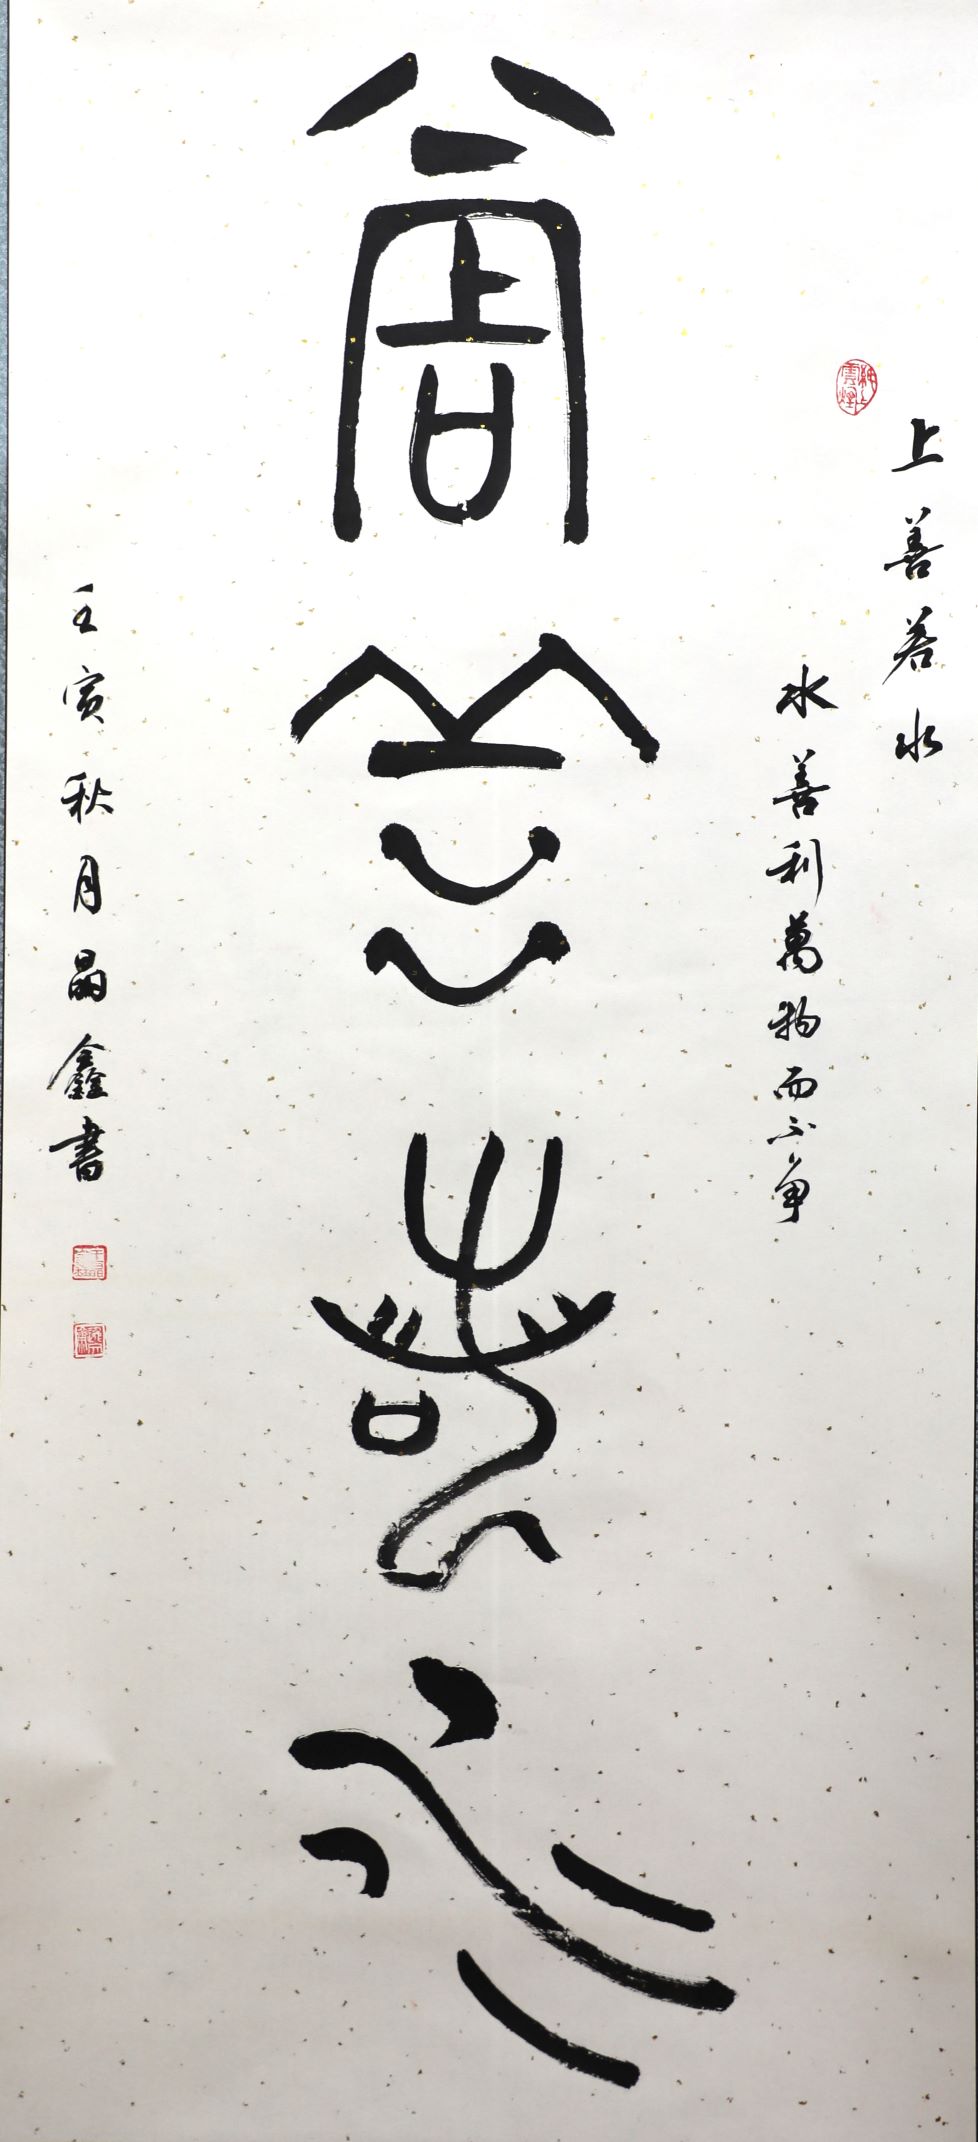 上善若水
水善利萬物而不争
上善若水
壬寅秋月晶鑫書